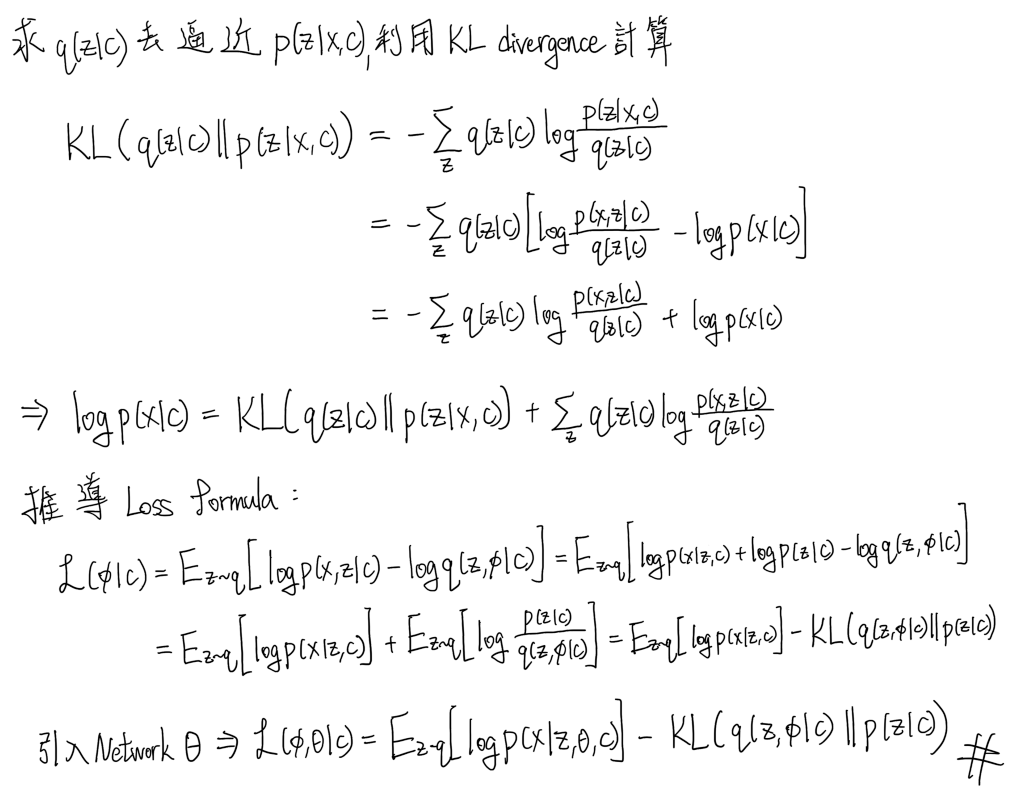 求 q(z|c) 去逼近 p(z|x,c), 利用 KL divergence 計算
KL(q(z|c)||p(z|x,c)) = -∑_z q(z|c) log p(z|x,c)/q(z|c)
= -∑_z q(z|c)[log p(x,z|c)/q(z|c) - log p(x|c)]
= -∑_z q(z|c) log p(x,z|c)/q(z|c) + log p(x|c)
⇒ log p(x|c) = KL(q(z|c)||p(z|x,c)) + ∑_z q(z|c) log p(x,z|c)/q(z|c)
推導 Loss formula :
ℒ(ϕ|c) = E_{z~q}[log p(x,z|c) - log q(z,ϕ|c)] = E_{z~q}[log p(x|z,c) + log p(z|c) - log q(z,ϕ|c)]
= E_{z~q}[log p(x|z,c)] + E_{z~q}[log p(z|c)/q(z,ϕ|c)] = E_{z~q}[log p(x|z,c)] - KL(q(z,ϕ|c)||p(z|c))
引入 Network θ ⇒ ℒ(ϕ,θ|c) = E_{z~q}[log p(x|z,θ,c)] - KL(q(z,ϕ|c)||p(z|c)) #